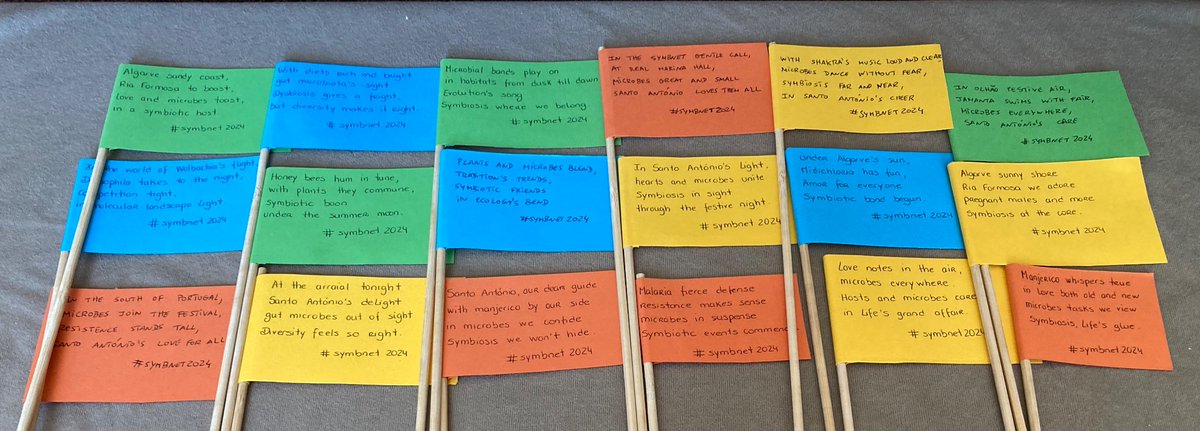 Algarve sandy coast,
Ria Formosa to boast,
Love and microbes toast,
in a symbiotic host
#symbnet 2024
With diets rich and bright
gut microbiota's sight
Symbiosis gives a fight,
but diversity makes it right.
#symbnet 2024
Microbial bands play on
in habitats from dusk till dawn
Evolution's song
Symbiosis where we belong
#symbnet 2024
IN THE SYMBNET GENTLE CALL,
AT REAL MARINA HALL,
MICROBES GREAT AND SMALL
SANTO ANTÓNIO LOVES THEM ALL
#SYMBNET2024
WITH SHAKRA'S MUSIC LOUD AND CLEAR
MICROBES DANCE WITHOUT FEAR,
SYMBIOSIS FAR AND NEAR,
IN SANTO ANTÓNIO'S CHEER
#SYMBNET 2024
IN OLHÃO FESTIVE AIR,
JAMANTA SWIMS WITH FAIR,
MICROBES EVERYWHERE,
SANTO ANTÓNIO'S CARE
#SYMBNET 2024
the world of Wolbachia's flight
takes to the night,
tight,
molecular landscape light.
#symbnet 2024
Honey bees hum in tune,
with plants they commune,
Symbiotic boon
under the summer moon.
#symbnet 2024
PLANTS AND MICROBES BLEND,
TRADITION'S TRENDS,
SYMBIOTIC FRIENDS
IN ECOLOGY'S BEND
#SYMBNET 2024
In Santo António's light,
hearts and microbes unite
Symbiosis in sight
through the festive night
#symbnet 2024
under Algarve's sun,
Midichloria has fun,
Amor for everyone
Symbiotic bond begun.
#symbnet 2024
Algarve sunny shore
Ria Formosa we adore
pregnant males and more
Symbiosis at the core.
#symbnet 2024
IN THE SOUTH OF PORTUGAL,
MICROBES JOIN THE FESTIVAL,
RESISTENCE STANDS TALL,
SANTO ANTÓNIO'S LOVE FOR ALL
#SYMBNET2024
At the arraial tonight
Santo António's delight
gut microbes out of sight
Diversity feels so right.
#symbnet 2024
Santo António, our dear guide
with manjerico by our side
in microbes we confide
Symbiosis we won't hide.
#symbnet 2024
Malaria fierce defense
Resistance makes sense
microbes in suspense
Symbiotic events commence
#symbnet 2024
Love notes in the air,
microbes everywhere.
Hosts and microbes care
in Life's grand affair.
#symbnet 2024
Manjerico whispers true
in love both old and new
microbes tasks we view
Symbiosis, Life's glue.
#symbnet 2024